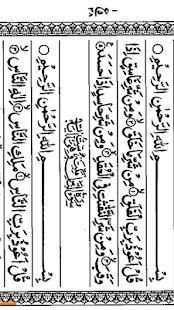 بِسْمِ اللهِ الرَّحْمٰنِ الرَّحِيْمِ
قُلْ اَعُوْذُ بِرَبِّ الْفَلَقِ مِنْ شَرِّ مَا خَلَقَ وَمِنْ شَرِّ غَاسِقٍ اِذَا
وَقَبَ وَمِنْ شَرِّ النَّفّٰثٰتِ فِي الْعُقَدِ وَمِنْ شَرِّ حَاسِدٍ اِذَا حَسَدَ
بِسْمِ اللهِ الرَّحْمٰنِ الرَّحِيْمِ
قُلْ اَعُوْذُ بِرَبِّ النَّاسِ مَلِكِ النَّاسِ اِلٰهِ النَّاسِ